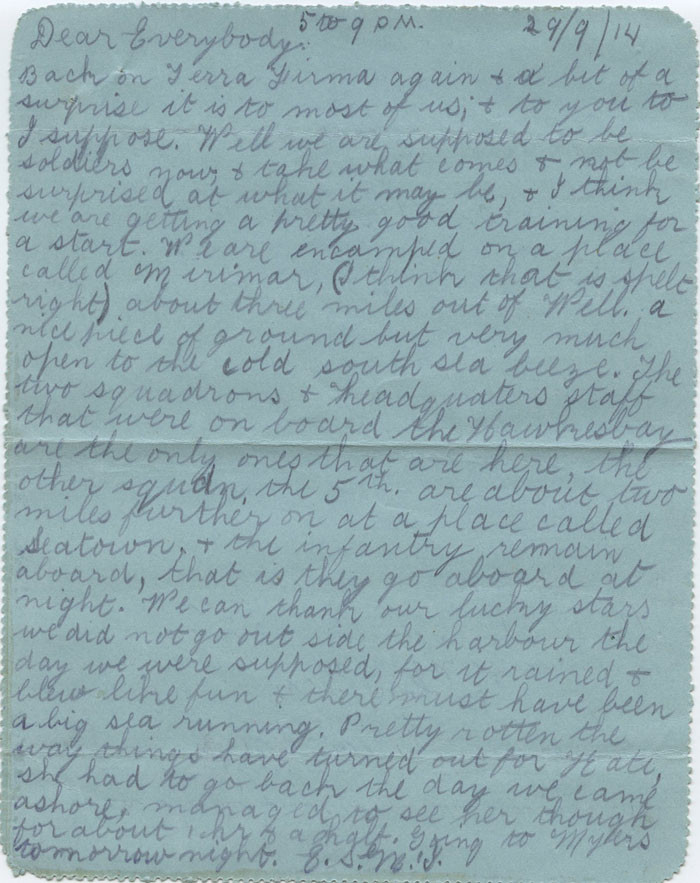 5 to 9 P.M. 29/9/14
Dear Everybody:
Back on Terra Firma again & a bit of a
surprise it is to most of us; & to you to
I suppose. Well we are supposed to be
soldiers now, & take what comes & not be
surprised at what it may be, & I think
we are getting a pretty good training for
a start. We are encamped on a place
called Mirimar, (I think that is spelt
right) about three miles out of Well. a
nice piece of ground but very much
open to the cold south sea beeze. The
two squadrons & headquaters staff
that were on board the Hawkesbay
are the only ones that are here, the
other squdn, the 5th. are about two
miles further on at a place called
Seatown, & the infantry remain
aboard, that is they go aboard at
night. We can thank our lucky stars
we did not go out side the harbour the
day we were supposed, for it rained &
blew like fun & there must have been
a big sea running. Pretty rotten the
way things have turned out for Kate,
she had to go back the day we came
ashore, managed to see her though
for about 1 hr & a hglt. Going to Myers
tomorrow night. E.S.M.T.